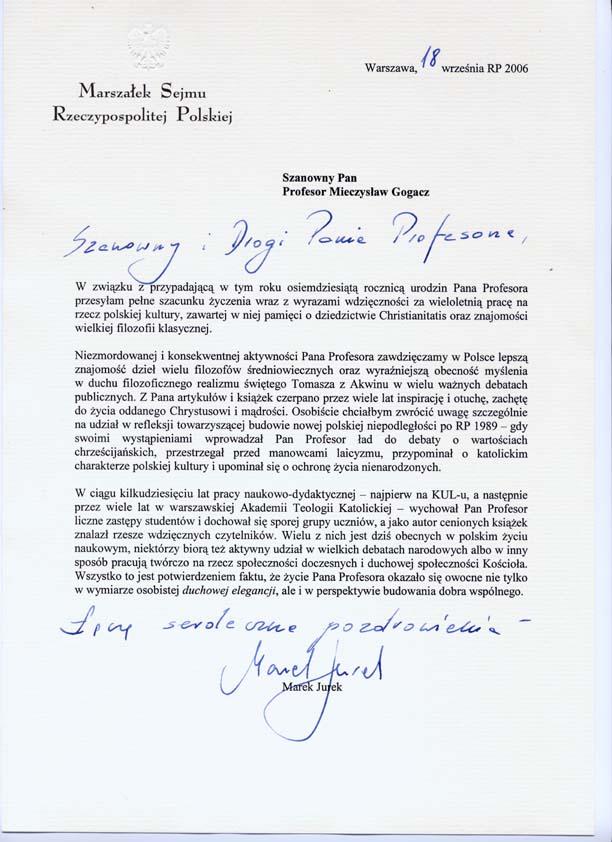 Warszawa, 18 września RP 2006
Marszałek Sejmu
Rzeczypospolitej Polskiej
Szanowny Pan
Profesor Mieczysław Gogacz
Szanowny i Drogi Panie Profesorze,
W związku z przypadającą w tym roku osiemdziesiątą rocznicą urodzin Pana Profesora
przesyłam pełne szacunku życzenia wraz z wyrazami wdzięczności za wieloletnią pracę na
rzecz polskiej kultury, zawartej w niej pamięci o dziedzictwie Christianitatis oraz znajomości
wielkiej filozofii klasycznej.
Niezmordowanej i konsekwentnej aktywności Pana Profesora zawdzięczamy w Polsce lepszą
znajomość dzieł wielu filozofów średniowiecznych oraz wyraźniejszą obecność myślenia
w duchu filozoficznego realizmu świętego Tomasza z Akwinu w wielu ważnych debatach
publicznych. Z Pana artykułów i książek czerpano przez wiele lat inspirację i otuchę, zachętę
do życia oddanego Chrystusowi i mądrości. Osobiście chciałbym zwrócić uwagę szczególnie
na udział w refleksji towarzyszącej budowie nowej polskiej niepodległości po RP 1989 – gdy
swoimi wystąpieniami wprowadzał Pan Profesor ład do debaty o wartościach
chrześcijańskich, przestrzegał przed manowcami laicyzmu, przypominał o katolickim
charakterze polskiej kultury i upominał się o ochronę życia nienarodzonych.
W ciągu kilkudziesięciu lat pracy naukowo-dydaktycznej – najpierw na KUL-u, a następnie
przez wiele lat w warszawskiej Akademii Teologii Katolickiej – wychował Pan Profesor
liczne zastępy studentów i dochował się sporej grupy uczniów, a jako autor cenionych książek
znalazł rzesze wdzięcznych czytelników. Wielu z nich jest dziś obecnych w polskim życiu
naukowym, niektórzy biorą też aktywny udział w wielkich debatach narodowych albo w inny
sposób pracują twórczo na rzecz społeczności doczesnych i duchowej społeczności Kościoła.
Wszystko to jest potwierdzeniem faktu, że życie Pana Profesora okazało się owocne nie tylko
w wymiarze osobistej duchowej elegancji, ale i w perspektywie budowania dobra wspólnego.
Łączę serdeczne pozdrowienia –
Marek Jurek
Marek Jurek